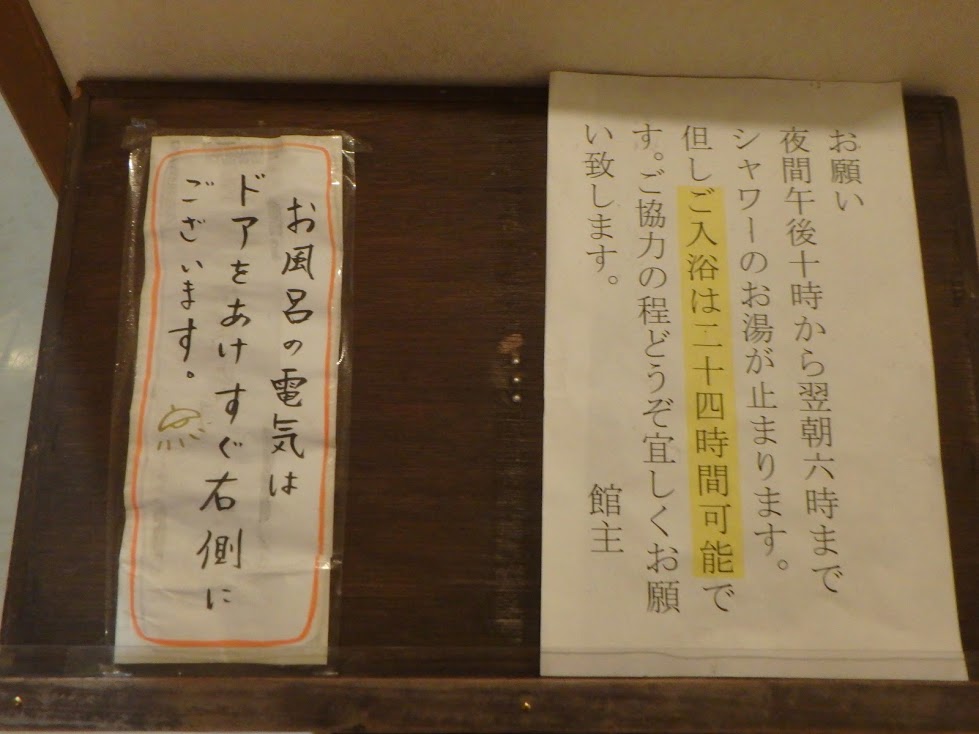 お願い
夜間午後十時から翌朝六時まで
シャワーのお湯が止まります。
但しご入浴は二十四時間可能で
す。ご協力の程どうぞ宜しくお願
い致します。
館主
お風呂の電気は
ドアをあけすぐ右側に
ございます。